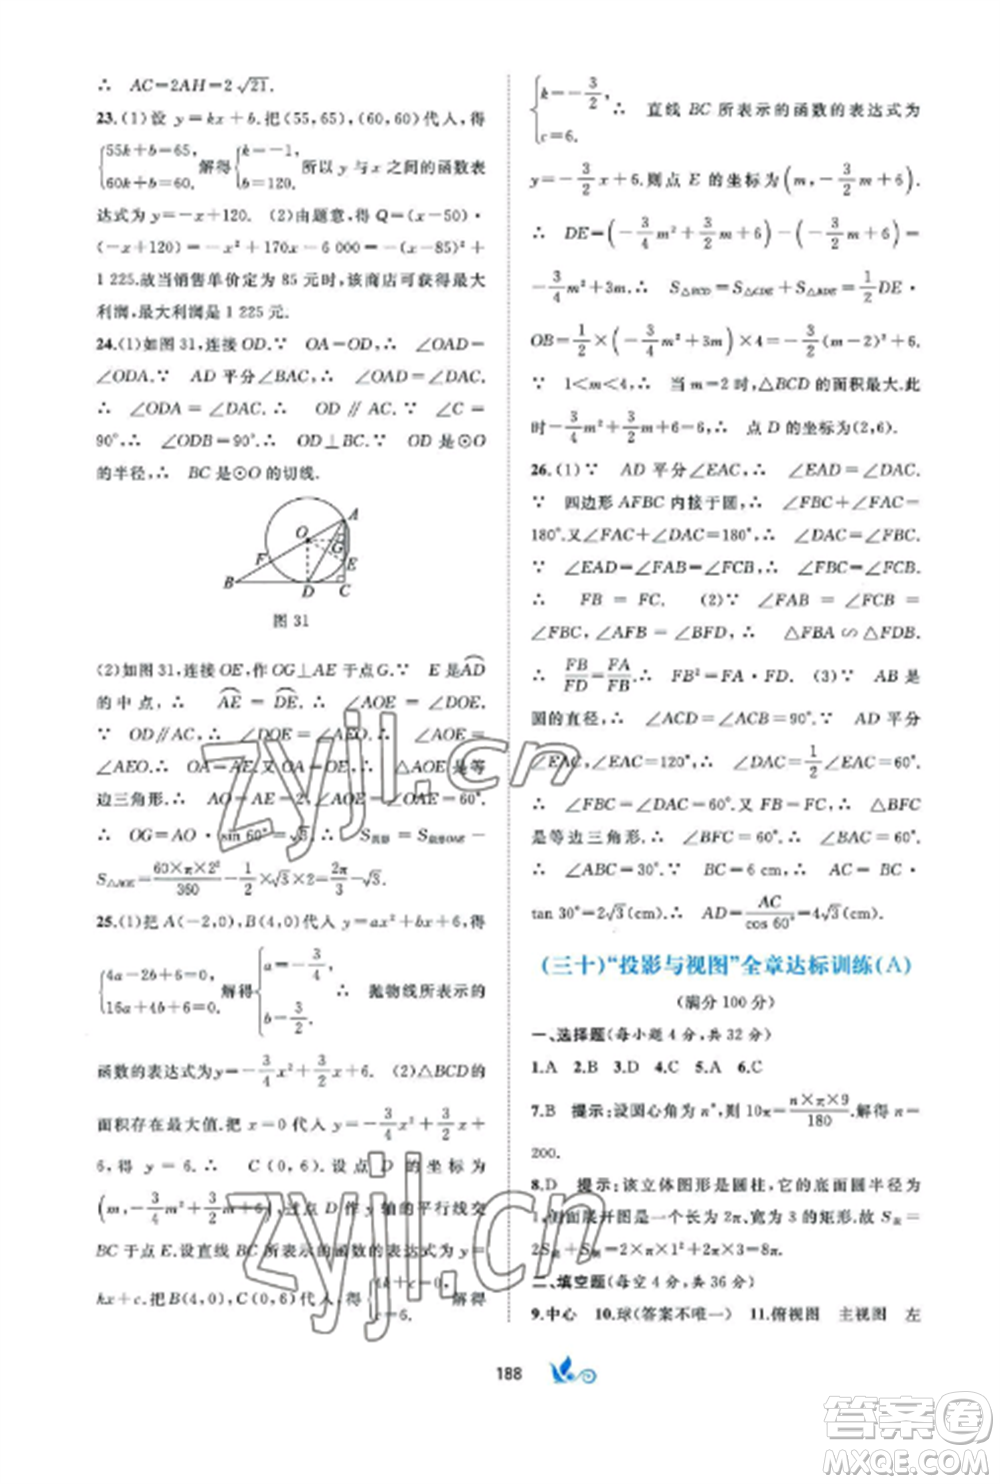 ∴ AC=2AH=2√21.
23.(1)设 y=kx+b.把(55,65),(60,60)代入,得
{55k+b=65, 60k+b=60. 解得 {k=-1, b=120. 所以 y 与 x 之间的函数表
达式为 y=-x+120. (2)由题意,得 Q=(x-50)·
(-x+120)=-x²+170x-6 000=-(x-85)²+
1 225.故当销售单价定为 85 元时,该商店可获得最大
利润,最大利润是 1 225 元.
24.(1)如图 31,连接 OD.∵ OA=OD,∴ ∠OAD=
∠ODA.∵ AD 平分∠BAC,∴ ∠OAD=∠DAC.
∴ ∠ODA=∠DAC.∴ OD∥AC.∵ ∠C=
90°,∴ ∠ODB=90°.∴ OD⊥BC.∵ OD 是⊙O
的半径,∴ BC 是⊙O 的切线.
A
O
G
F
E
B
D
C
图 31
(2)如图 31,连接 OE,作 OG⊥AE 于点 G.∵ E 是AD⌒
的中点,∴ AE⌒=DE⌒.∴ ∠AOE=∠DOE.
∵ OD∥AC,∴ ∠DOE=∠AEO.∴ ∠AOE=
∠AEO.∴ OA=AE.又∵ OA=OE,∴ △AOE 是等
边三角形.∴ AO=AE=2,∠AOE=∠OAE=60°.
∴ OG=AO·sin 60°=√3.∴ S阴影=S扇形OAE-
S△AOE=60×π×2²/360-1/2×√3×2=2π/3-√3.
25.(1)把 A(-2,0),B(4,0)代入 y=ax²+bx+6,得
{4a-2b+6=0, 16a+4b+6=0. 解得 {a=-3/4, b=3/2. ∴ 抛物线所表示的
函数的表达式为 y=-3/4x²+3/2x+6. (2)△BCD的
面积存在最大值.把 x=0代入 y=-3/4x²+3/2x
+6,得 y=6.∴ C(0,6).设点 D 的坐标为
(m,-3/4m²+3/2m+6),过点 D作 y 轴的平行线交
BC 于点 E.设直线 BC 所表示的函数的表达式为 y=
kx+c.把 B(4,0),C(0,6)代入,得{4k+c=0, c=6. 解得
{k=-3/2, c=6. ∴ 直线 BC 所表示的函数的表达式为
y=-3/2x+6.则点 E 的坐标为(m,-3/2m+6).
∴ DE=(-3/4m²+3/2m+6)-(-3/2m+6)=
-3/4m²+3m.∴ S△BCD=S△CDE+S△BDE=1/2DE·
OB=1/2×(-3/4m²+3m)×4=-3/2(m-2)²+6.
∵ 1<m<4,∴ 当 m=2时,△BCD 的面积最大.此
时-3/4m²+3/2m+6=6,∴ 点 D 的坐标为(2,6).
26.(1)∵ AD 平分∠EAC,∴ ∠EAD=∠DAC.
∵ 四边形 AFBC 内接于圆,∴ ∠FBC+∠FAC=
180°.又∠FAC+∠DAC=180°,∴ ∠DAC=∠FBC.
∵ ∠EAD=∠FAB=∠FCB,∴ ∠FBC=∠FCB.
∴ FB=FC. (2)∵ ∠FAB=∠FCB=
∠FBC,∠AFB=∠BFD,∴ △FBA∽△FDB.
∴ FB/FD=FA/FB.∴ FB²=FA·FD. (3)∵ AB是
圆的直径,∴ ∠ACD=∠ACB=90°.∵ AD 平分
∠EAC,∠EAC=120°,∴ ∠DAC=1/2∠EAC=60°.
∴ ∠FBC=∠DAC=60°.又 FB=FC,∴ △BFC
是等边三角形.∴ ∠BFC=60°.∴ ∠BAC=60°.
∴ ∠D=∠ABC=30°.∵ BC=6 cm,∴ AC=BC·
tan 30°=2√3(cm).∴ AD=AC/cos 60°=4√3(cm).
(三十)“投影与视图”全章达标训练(A)
(满分 100 分)
一、选择题(每小题 4 分,共 32 分)
1.A 2.B 3.D 4.C 5.A 6.C
7.B 提示:设圆心角为 n°,则 10π=n×π×9/180.解得 n=
200.
8.D 提示:该立体图形是圆柱,它的底面圆半径为
1,侧面展开图是一个长为 2π、宽为 3 的矩形,故 S表=
2S底+S侧=2π×1²+2π×3=8π.
二、填空题(每空 4 分,共 36 分)
9.中心 10.球(答案不唯一) 11.俯视图 主视图 左
188
zyjl.cn
zyjl.cn
答案圈
MXQE.COM